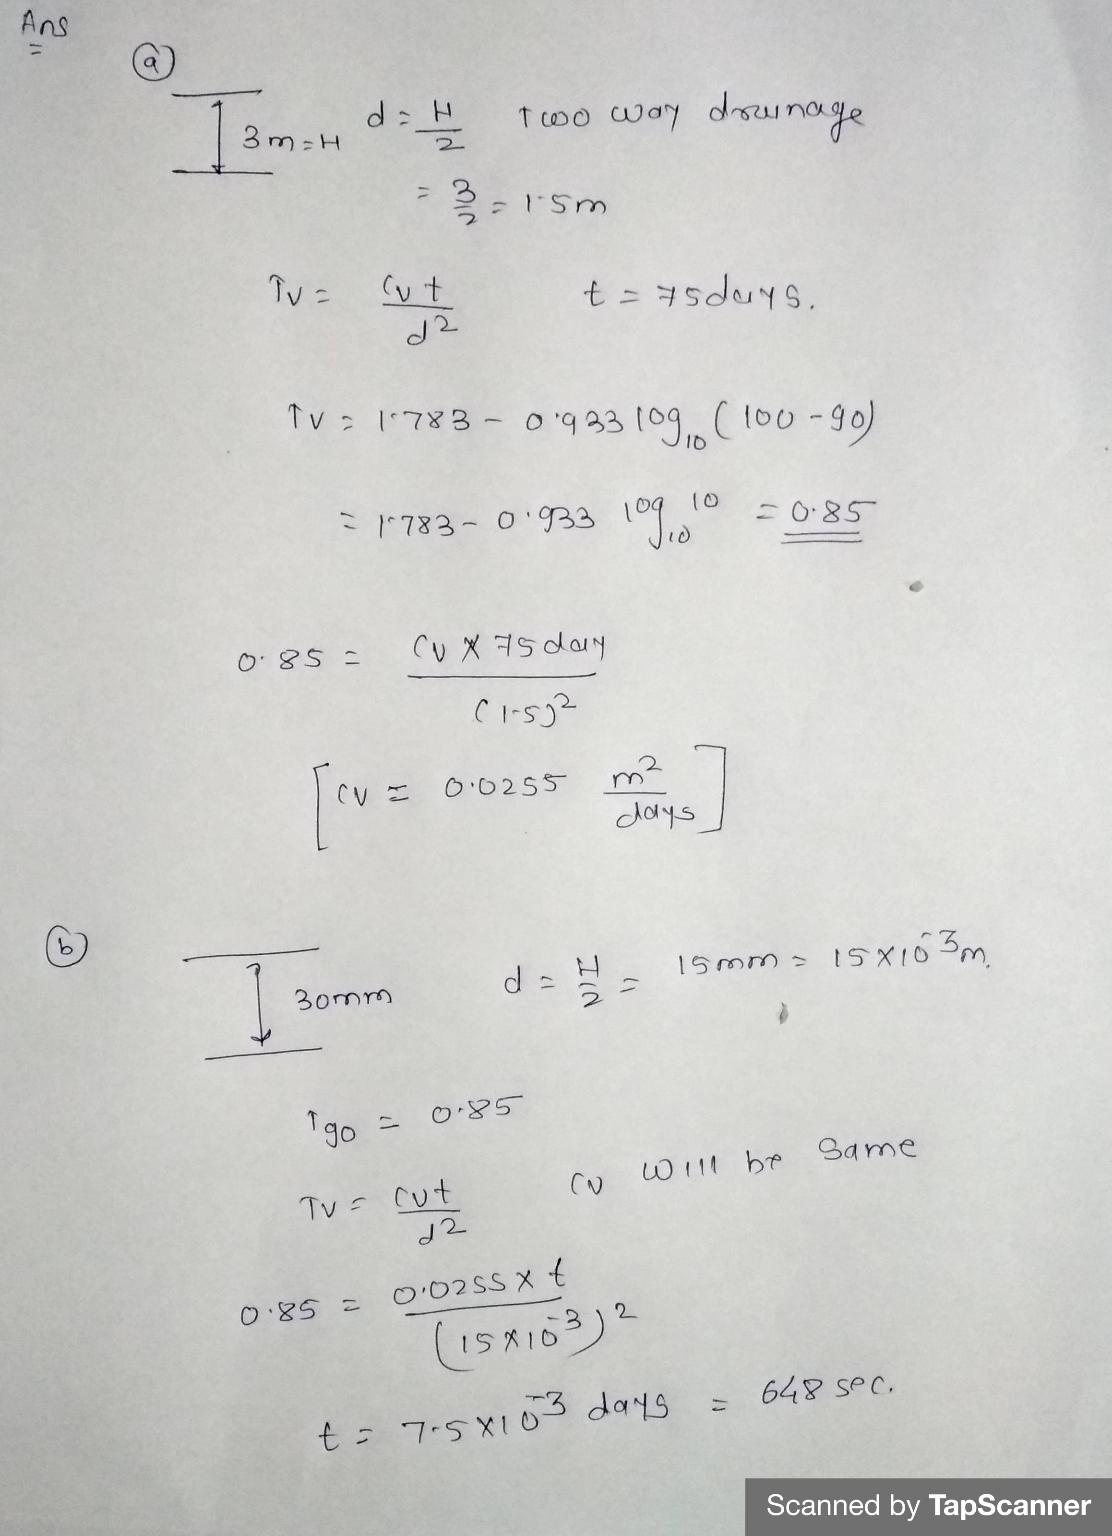 Ans
=
(a)
3m=H d = H/2 Two way drainage
= 3/2 = 1.5m
Tv = Cvt/d² t = 75days.
Tv = 1.783 - 0.933 log₁₀ (100 - 90)
= 1.783 - 0.933 log₁₀ 10 = 0.85
0.85 = Cv × 75day/(1.5)²
[Cv = 0.0255 m²/days]
(b)
30mm d = H/2 = 15mm = 15×10⁻³m.
T90 = 0.85
Tv = Cvt/d² Cv will be same
0.85 = 0.0255 × t/(15×10⁻³)²
t = 7.5×10⁻³ days = 648 sec.
Scanned by TapScanner